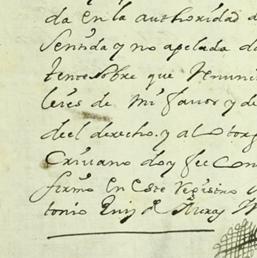 da en la authoridad d
sentida y no apelada d
tence sobre que Renunci
leies de mi fauor y de
del derecho. y al otorg
Criuano doy fee con
firmo en este Registro
tonio Ruiz de